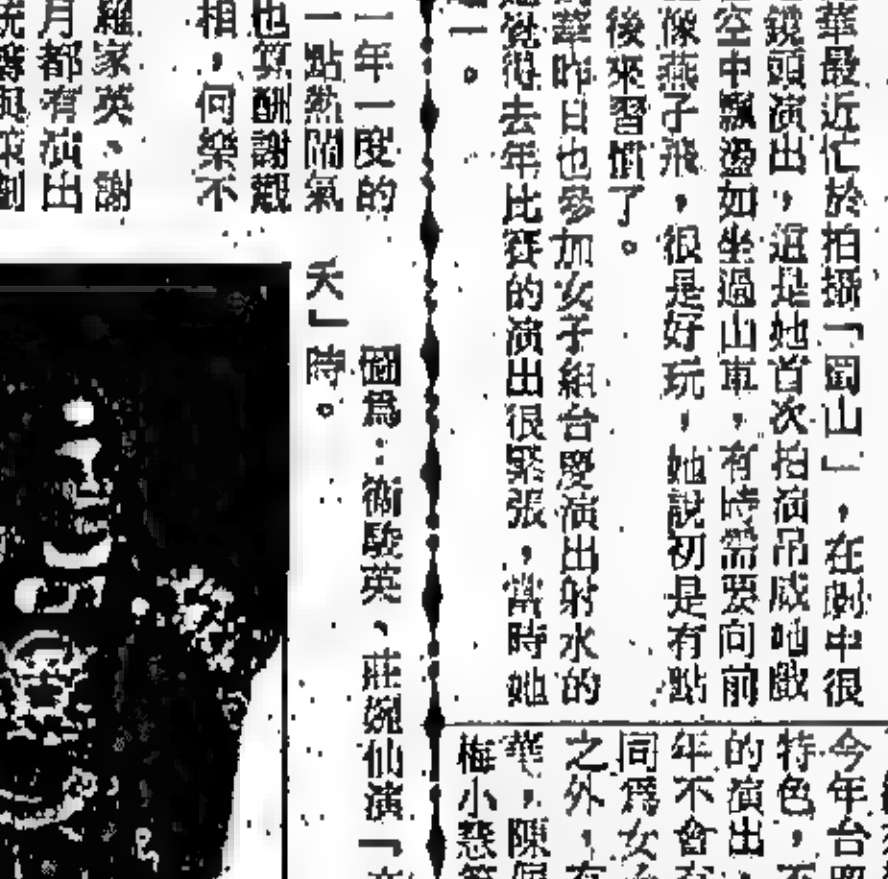 華最近忙於拍攝「蜀山」，在劇中很
鏡頭演出，這是她首次拍演吊威吔戲
空中飄盪如坐過山車，有時需要向前
像燕子飛，很是好玩，她說初是有點
後來習慣了。
華昨日也參加女子組台慶演出射水的
覺得去年比賽的演出很緊張，當時她
一。
今年台
特色，不
的演出，
年不會
同為女
之外，
華，陳
梅小慧
一年一度的
一點熱鬧氣
也算酬謝觀
相，何樂不
羅家英、謝
月都有演出
圖為：衛駿英、莊婉仙演「
夭」時。